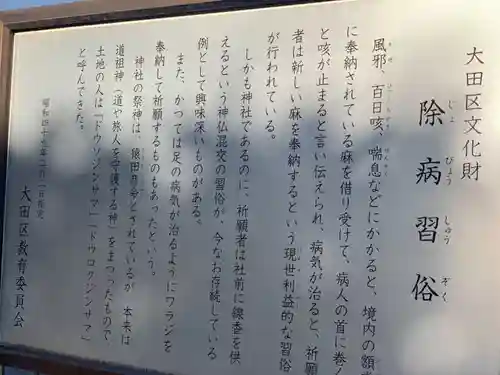 大田区文化財
除病習俗
じょ びょう しゅう ぞく
風邪、百日咳、喘息などにかかると、境内の額
に奉納されている麻を借り受けて、病人の首に巻く
と咳が止まると言い伝えられ、病気が治ると、祈願
者は新しい麻を奉納するという現世利益的な習俗
が行われている。
しかも神社であるのに、祈願者は社前に線香を供
えるという神仏混交の習俗が、今なお存続している
例として興味深いものがある。
また、かつては足の病気が治るようにワラジを
奉納して祈願するものもあったという。
神社の祭神は、猿田彦命とされているが、本来は
道祖神(道や旅人を守護する神)をまつったもので
土地の人は「ドウソジンサマ」「ドウロクジンサマ」
と呼んできた。
昭和四十九年二月二日指定
大田区教育委員会